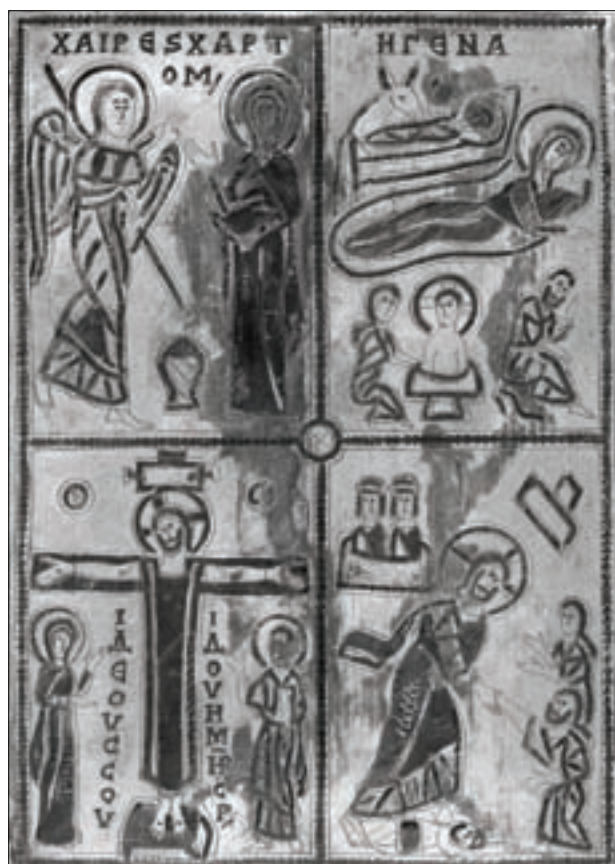 ΧΑΙΡΕSΧΑΡΤ
ΟΜ/
ΗΓΕΝΑ
ΙΔΕΟΥCCΟΥ
ΙΔΟΥΗΜΗ